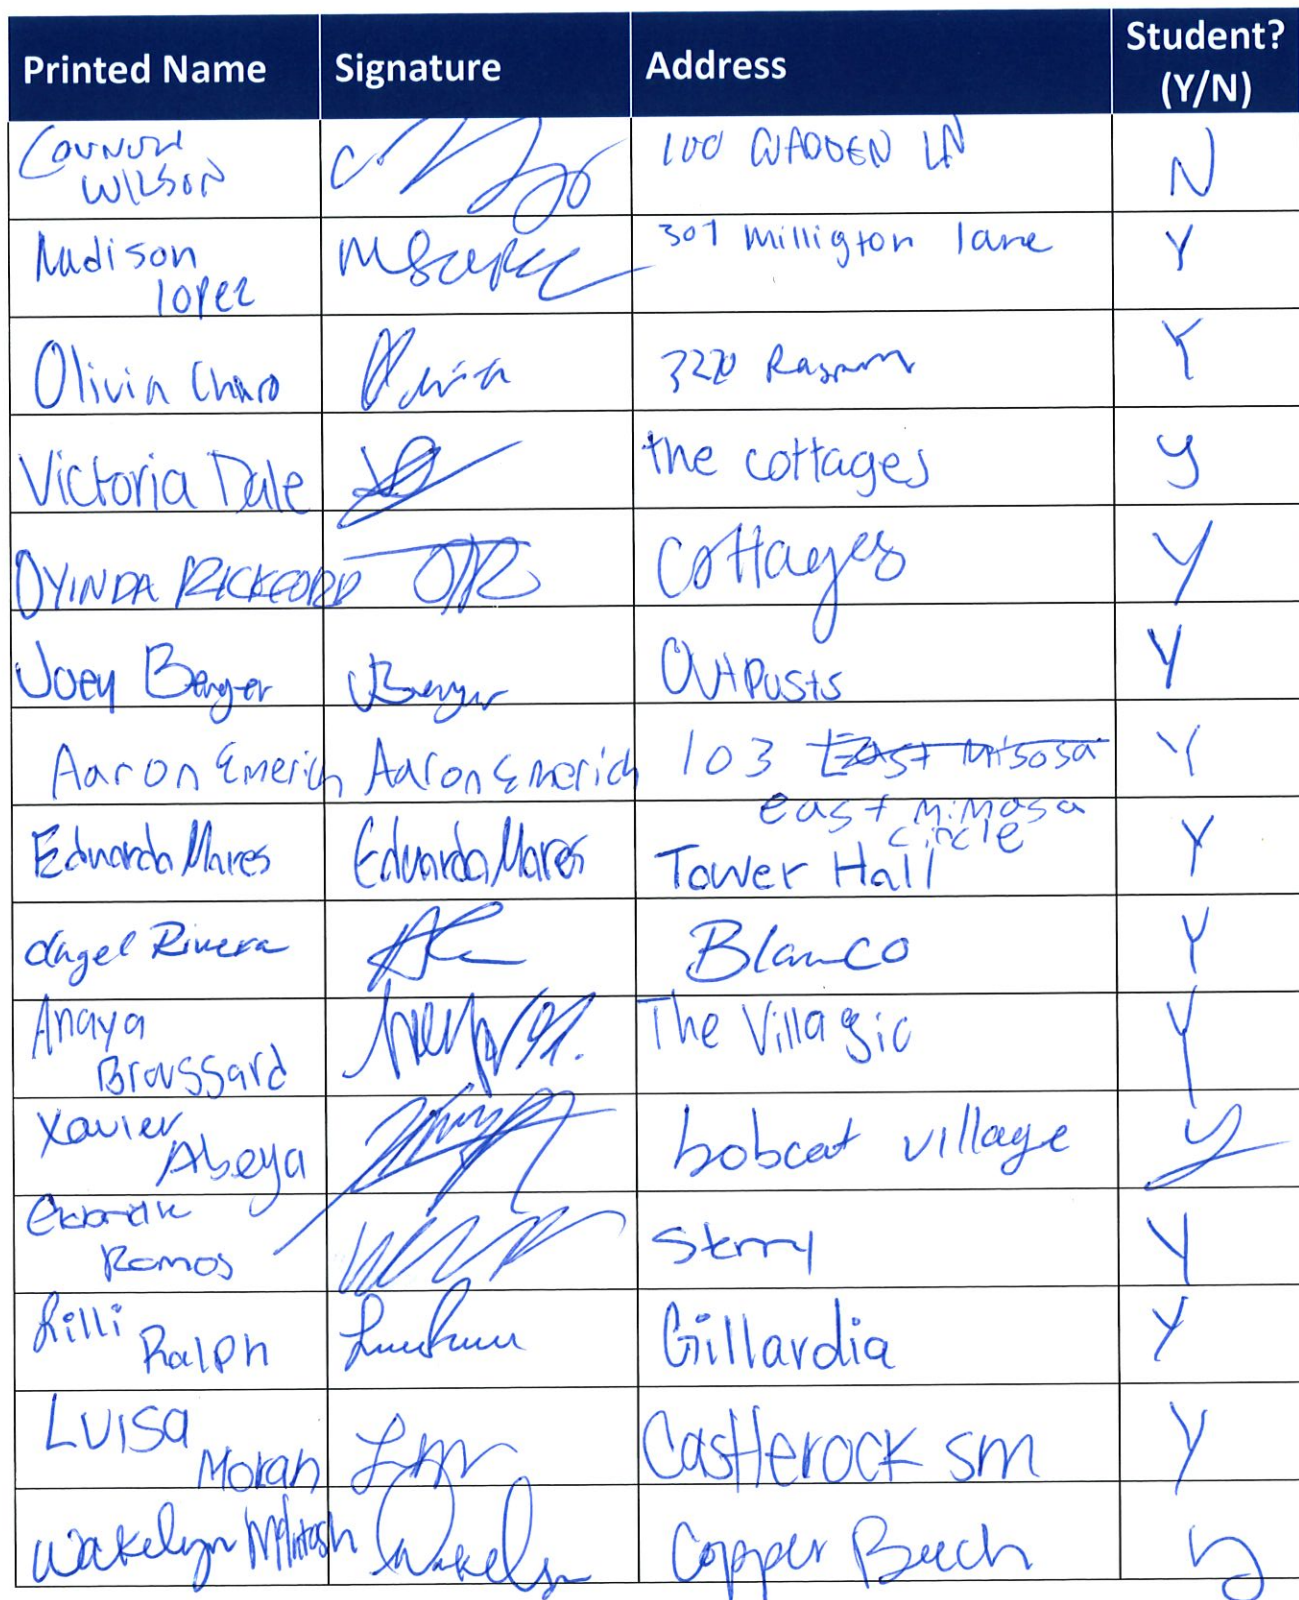 Printed Name Signature Address Student? (Y/N)
WILSON 100 LN N
Madison lopez 307 Milligton lane Y
Olivia Charo Olivia 3220 Y
Victoria Dale the cottages y
OYINDA RICKFORD Cottages Y
Joey Berger JBerger Outposts Y
Aaron Emerich Aaron Emerich 103 East Misosa Y
east Mimosa circle
Eduardo Mares Eduardo Mares Tower Hall Y
Angel Rivera Blanco Y
Anaya Broussard The Villagio Y
Xavier Abeya bobcat village y
Ramos Sterry Y
Lilli Ralph Gillardia Y
Luisa Moran Castlerock sm Y
Wakelyn McIntosh Wakelyn Copper Beech y